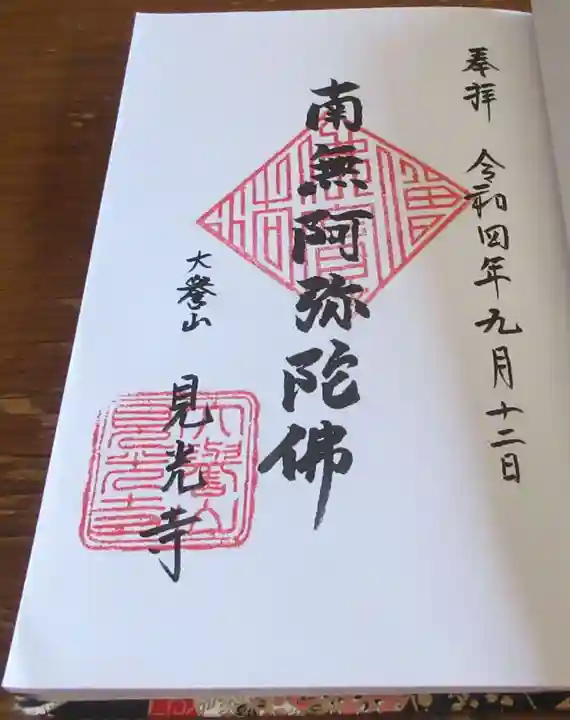 奉拝 令和四年九月十二日
南無阿弥陀佛
大譽山
見光寺